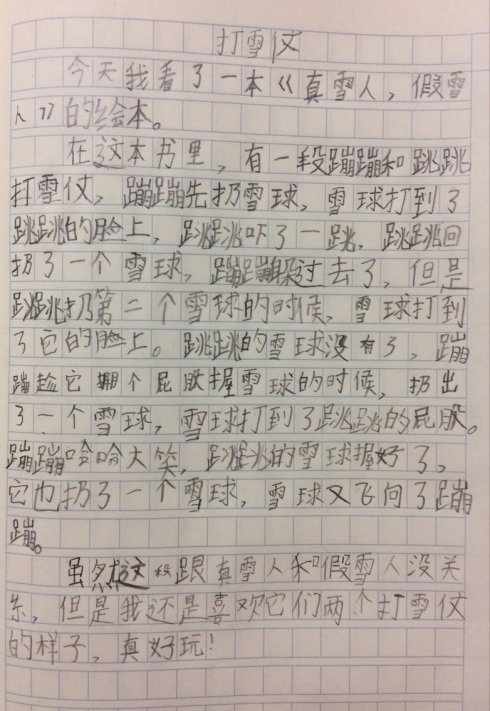 打雪仗
今天我看了一本《真雪人，假雪
人》的绘本。
在这本书里，有一段蹦蹦和跳跳
打雪仗，蹦蹦先扔雪球，雪球打到了
跳跳的脸上，跳跳吓了一跳，跳跳回
扔了一个雪球，蹦蹦躲过去了，但是
跳跳扔第二个雪球的时候，雪球打到
了它的脸上。跳跳的雪球没有了，蹦
蹦趁它撅个屁股握雪球的时候，扔出
了一个雪球，雪球打到了跳跳的屁股。
蹦蹦哈哈大笑，跳跳的雪球握好了，
它也扔了一个雪球，雪球又飞向了蹦
蹦。
虽然这段跟真雪人和假雪人没关
系，但是我还是喜欢它们两个打雪仗
的样子，真好玩！